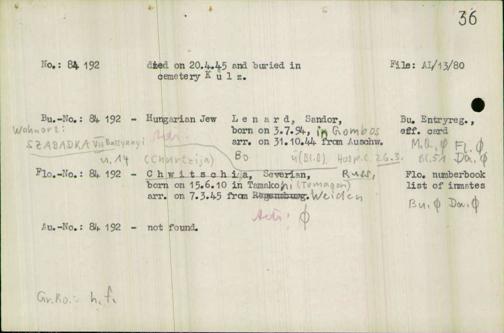 36
No.: 84 192 died on 20.4.45 and buried in File: AI/13/80
cemetery Külz.
Bu.-No.: 84 192 - Hungarian Jew Lenard, Sandor, Bu. Entryreg.,
Wohnort: born on 3.7.94, in Gombos eff. card
SZABADKA VII Batthyanyi arr. on 31.10.44 from Auschw. M.B. ϕ Fl. ϕ
u. 14 (Chwitzija) Bo 4(Bl.0) Hosp.C. 26.3. Bl.51 Da. ϕ
Flo.-No.: 84 192 - Chwitschija, Severian, Russ, Flo. numberbook
born on 15.6.10 in Tamakochi (Tamagon) list of inmates
arr. on 7.3.45 from Regensburg. Weiden Bu. ϕ Da. ϕ
ϕ
Au.-No.: 84 192 - not found.
Gr.Ro.: h.f.